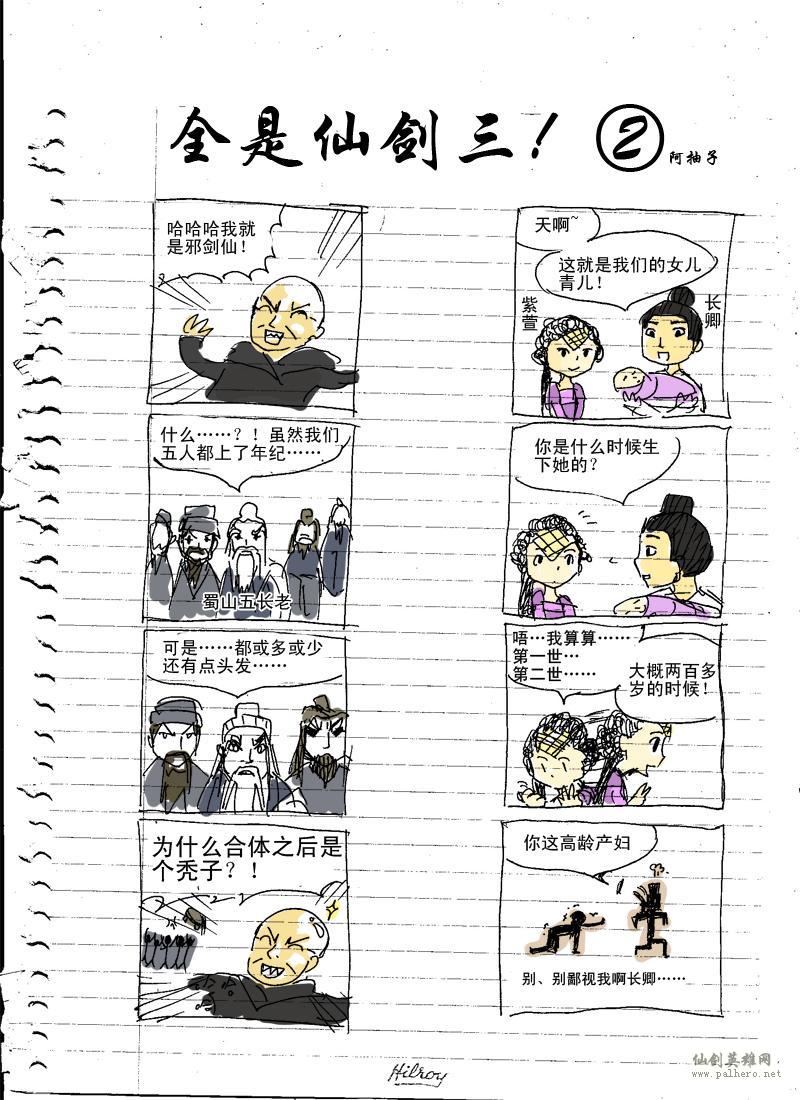 全是仙剑三! ②
阿柚子
哈哈哈我就
是邪剑仙!
什么……?!虽然我们
五人都上了年纪……
蜀山五长老
可是……都或多或少
还有点头发……
为什么合体之后是
个秃子?!
天啊~
这就是我们的女儿
青儿!
紫萱
长卿
你是什么时候生
下她的?
唔…我算算……
第一世…
第二世……
大概两百多
岁的时候!
你这高龄产妇
别、别鄙视我啊长卿……
Hilroy
仙剑英雄网
www.palhero.net